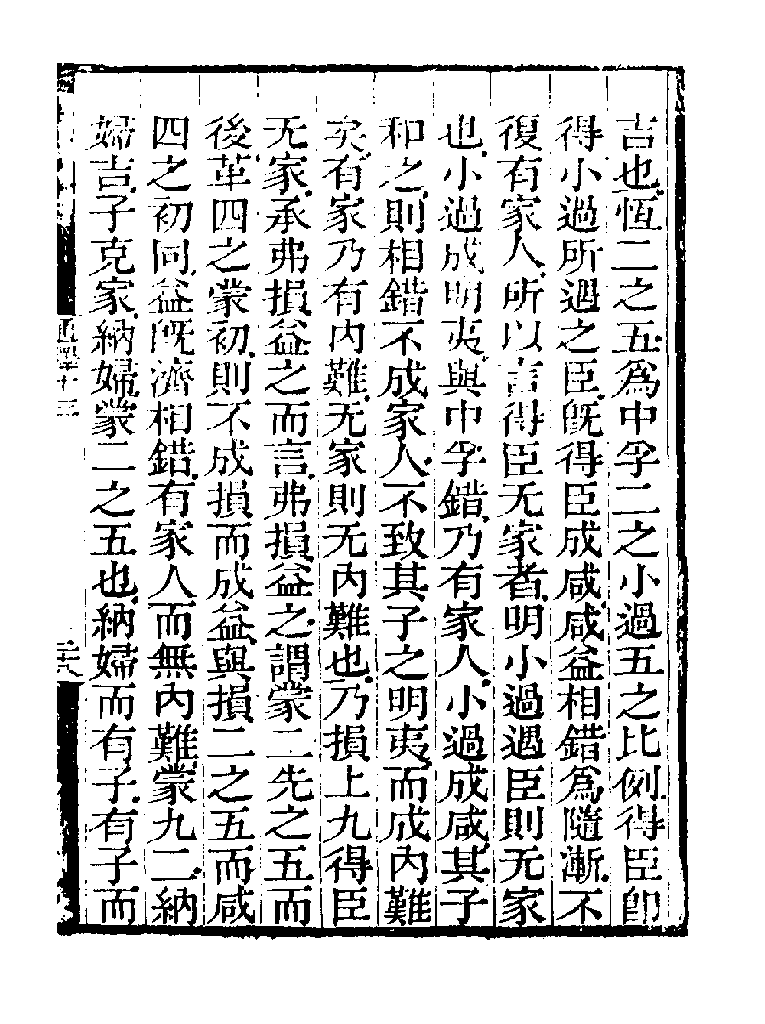 吉也恆二之五爲中孚二之小過五之比例得臣卽
得小過所遇之臣旣得臣成咸咸益相錯爲隨漸不
復有家人所以言得臣无家者明小過遇臣則无家
也小過成明夷與中孚錯乃有家人小過成咸其子
和之則相錯不成家人不致其子之明夷而成內難
矣有家乃有內難无家則无內難也乃損上九得臣
无家承弗損益之而言弗損益之謂蒙二先之五而
後革四之蒙初則不成損而成益與損二之五而咸
四之初同益旣濟相錯有家人而無內難蒙九二納
婦吉子克家納婦蒙二之五也納婦而有子有子而
通釋十三